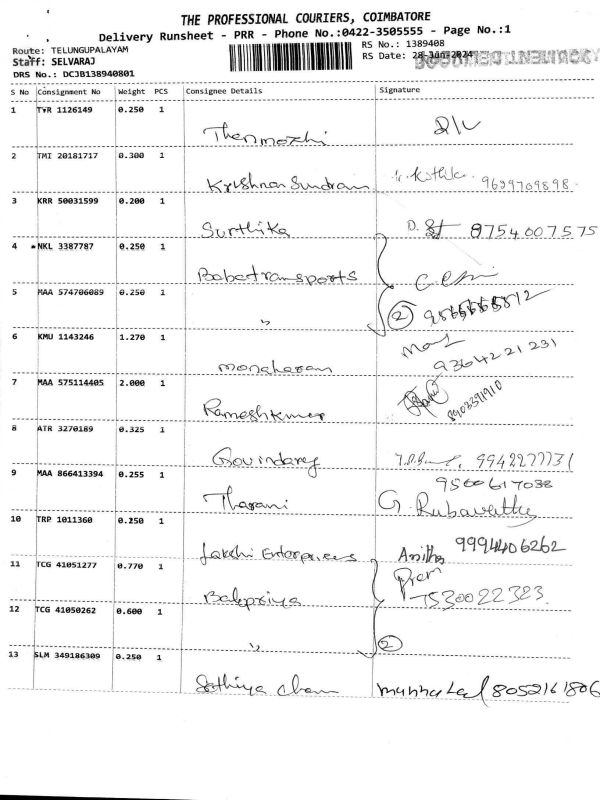 THE PROFESSIONAL COURIERS, COIMBATORE
Delivery Runsheet - PRR - Phone No.:0422-3505555 - Page No.:1
Route: TELUNGUPALAYAM
RS No.: 1389408
Staff: SELVARAJ
RS Date: 28-Jun-2024
DRS No.: DCJB138940801
S No Consignment No Weight PCS Consignee Details Signature
1 TVR 1126149 0.250 1
Thenmozhi
2 TMI 20181717 0.300 1
Krishnan Sundram 9659709898
3 KRR 50031599 0.200 1
Surthika D. 8754007575
4 *NKL 3387787 0.250 1
Babatransports
5 MAA 574706089 0.250 1
" 2
6 KMU 1143246 1.270 1
manaharan 9364221231
7 MAA 575114405 2.000 1
Rameshkumar 8903391910
8 ATR 3270189 0.325 1
Govindaraj
9 MAA 866413394 0.255 1
9500617038
Tharani G. Rubavathy
10 TRP 1011360 0.250 1
Lakshi Enterprises Anitha 9994406262
11 TCG 41051277 0.770 1
Prem
Balapriya 7530022323.
12 TCG 41050262 0.600 1
" 2
13 SLM 349186309 0.250 1
Sathiya Cham munna Lal 8052161806